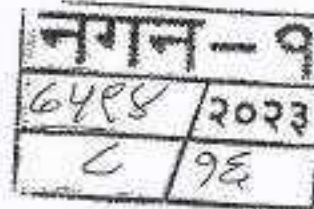 नगन-१
७५९४ / २०२३
८ / १६